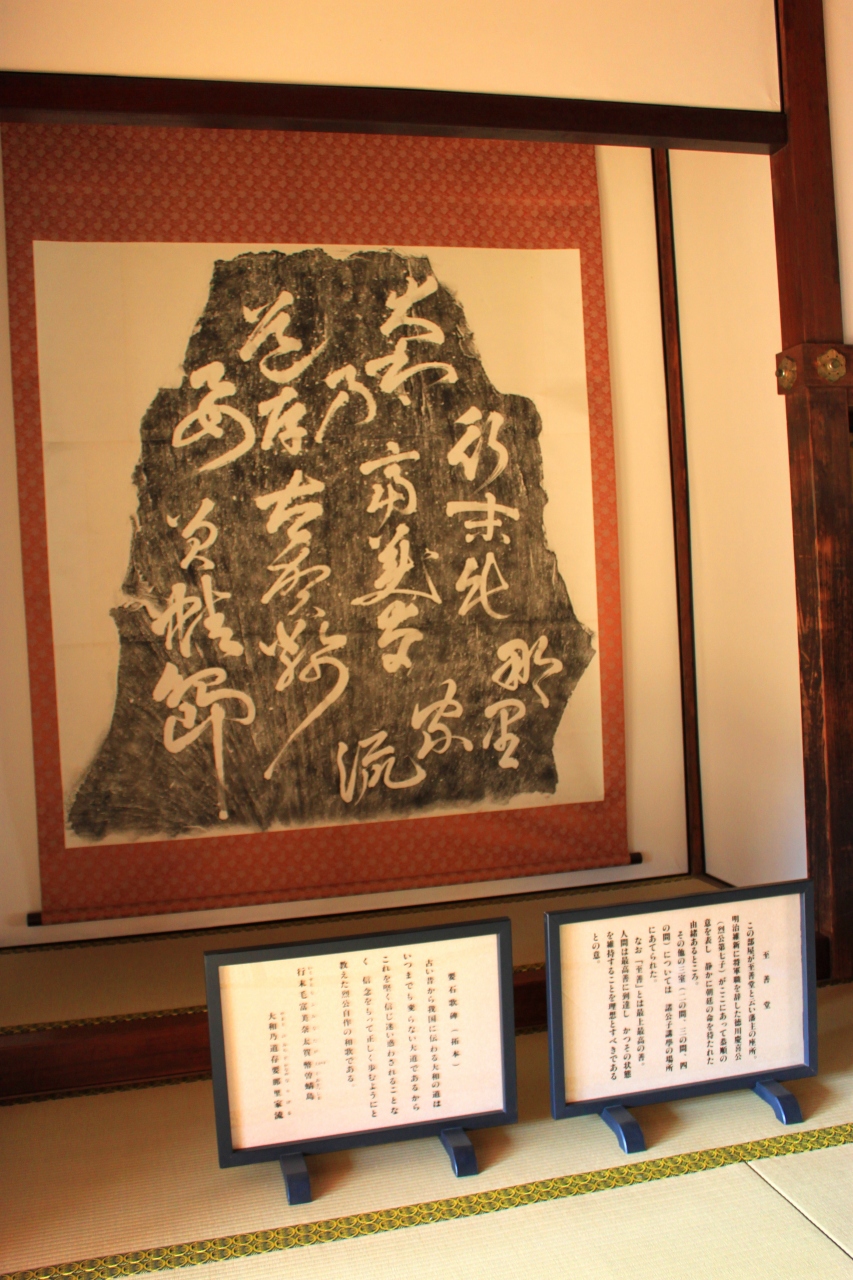 行末毛
富美奈
太賀幣
曽蜻島
大和
乃
道存
要
那里
家
流
至善堂
この部屋が至善堂と云い藩主の座所。
明治維新に将軍職を辞した徳川慶喜公
(烈公第七子)がここにあって恭順の
意を表し 静かに朝廷の命を待たれた
由緒あるところ。
その他の三室(二の間、三の間、四
の間)については 諸公子講學の場所
にあてられた。
なお『至善』とは最上最高の善。
人間は最高善に到達し かつその状態
を維持することを理想とすべきである
との意。
要石歌碑(拓本)
古い昔から我国に伝わる大和の道は
いつまでも変らない大道であるから
これを堅く信じ迷い惑わされることな
く 信念をもって正しく歩むようにと
教えた烈公自作の和歌である。
行末毛富美奈太賀幣曽蜻島
大和乃道存要那里家流